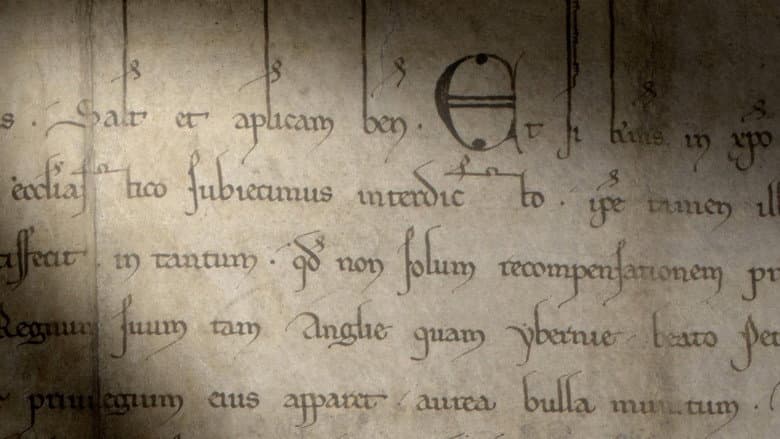 Salt et aplicam ben. Et si in xpo
ecclias tico subiecimus interdic to. ipe tamen ill
issecit in tantum. qd non solum recompensationem pr
Regnum suum tam Anglie quam ybernie beato Pet
privilegium eius apparet. aurea bulla munitum.